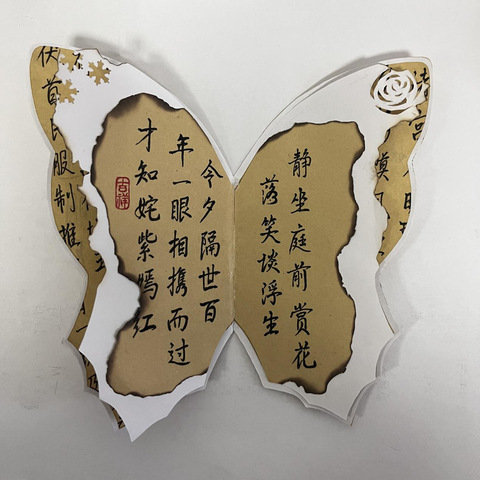 静坐庭前赏花
落笑谈浮生
今夕隔世百
年一眼相携而过
才知姹紫嫣红
吉祥
伏首 服制推
宫